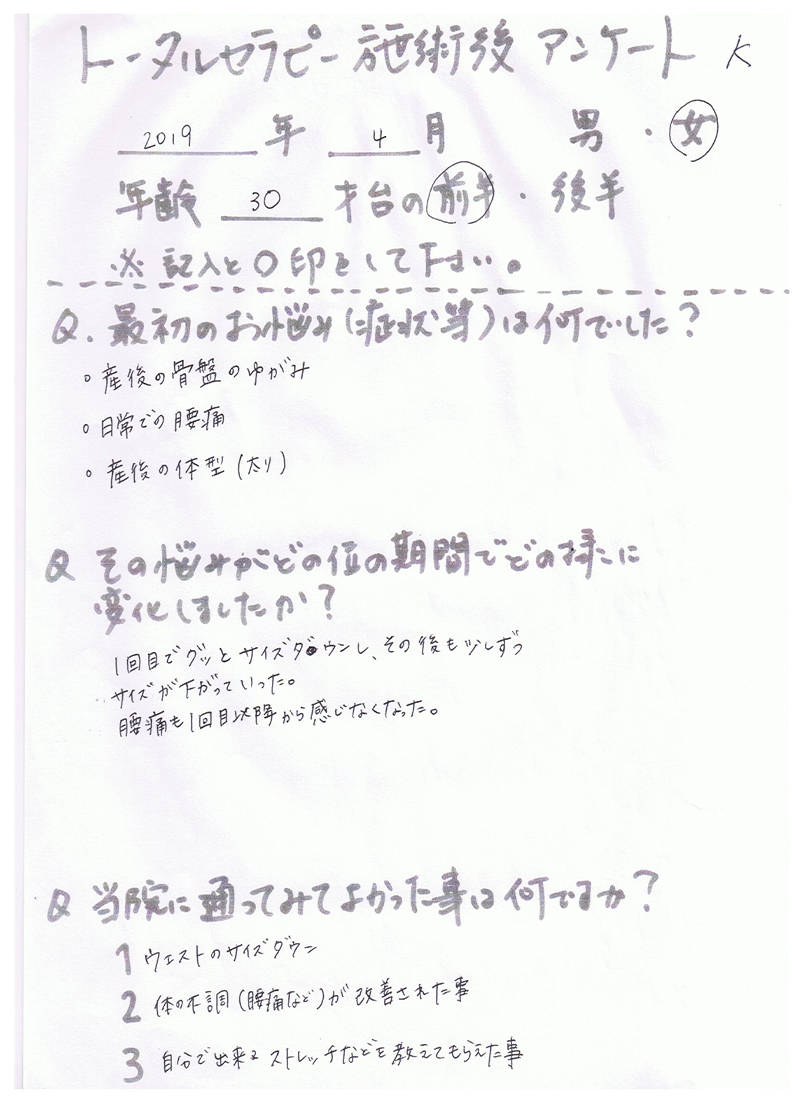 トータルセラピー 施術後 アンケート K
2019 年 4 月 男・女
年齢 30 才台の前半・後半
※ 記入と〇印をして下さい。
Q. 最初のお悩み(症状等)は何でした?
。産後の骨盤のゆがみ
。日常での腰痛
。産後の体型(太り)
Q その悩みがどの位の期間でどの様に
変化しましたか?
1回目でグッとサイズダウンし、その後も少しずつ
サイズが下がっていった。
腰痛も1回目以降から感じなくなった。
Q 当院に通ってみてよかった事は何ですか?
1 ウエストのサイズダウン
2 体の不調(腰痛など)が改善された事
3 自分で出来るストレッチなどを教えてもらえた事